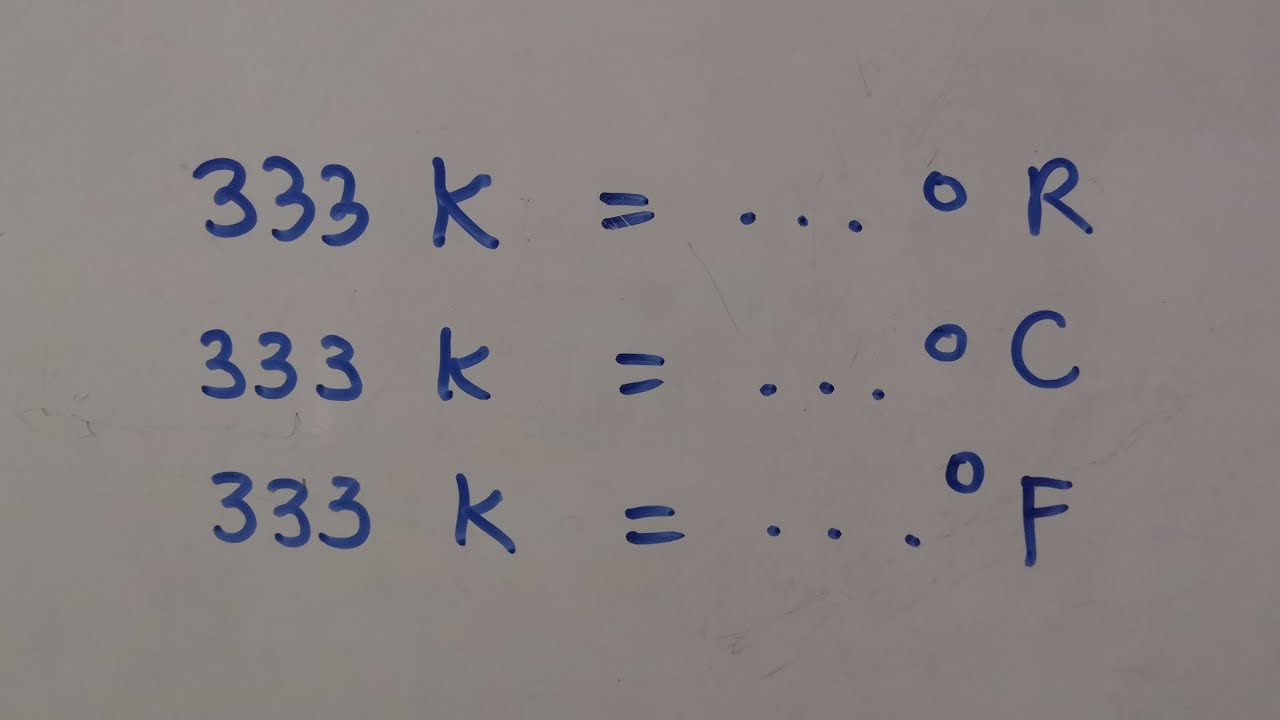 333 K = ... ° R
333 K = ... ° C
333 K = ... ° F